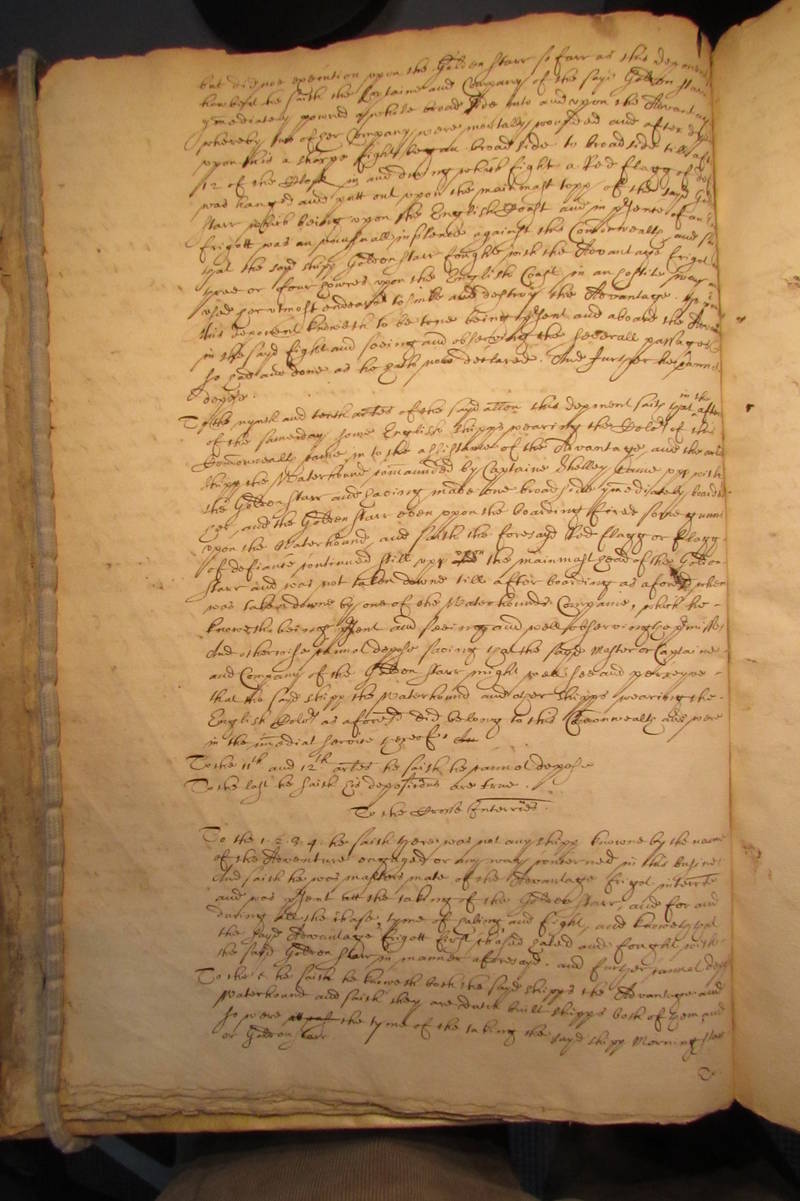 but did noe execution upon the Golden Starr so farr as this deponent
hee saith the Captaine and Company of the sayd Golden Starr
ymediately powred a whole broad side into and upon the Advantage
whereby two of her Company were mortally wounded and after
upon this a sharpe fight began broad side to broad side till
12 of the Clock in and during which fight a Red flagg of
was hanged and putt out upon the mainmast topp of the sayd
Starr which being upon the English Coast and in presence of an
frigott was an insolence against this Comonwealth, and
that the sayd shipp Golden Starr fought with the Advantage frigot
three or four howres upon the English Coast in an hostile way
used her utmost endeavor to sinke and destroy the Advantage.
this deponent knoweth to be true being present and aboard the
in the sayd fight and seeing and observing the severall passages
so had and done as he hath now declared. And further he cannot
depose.
To the nynth and tenth artles of the sayd allon this deponent saith that in the after
of the same day some English shipps wearing the Colors of this
Comonwealth came in to the assistance of the Advantage and the
shipp the Waterhound comaunded by Captaine Shelley came upp with
the Golden Starr and having made one broad side ymediately boarded
her, and the Golden Starr even upon the boarding fired some gunns
upon the Waterhound, and saith the foresayd Red flagg or flagg
of defiance continued still upp upon the mainmast head of the Golden
Starr and was not taken downe till after boarding as aforesd when
was taken downe by one of the Waterhounds Companie, which he
knoweth being present and seeing and well observing the premisses
And otherwise cannot depose saving that the sayd Master or Captaine
and Company of the Golden Starr might well see and perceyve
that the sayd shipp the Waterhound and other shipps wearing the
English Colors as aforesd did belong to this Comonwealth and were
in the imediat service thereof
To the 11th and 12th artles he saith he cannot depose
To the last he saith his depositions are true.
To the Crosse Interries.
To the 1. 2. 3. 4. he saith there was not any shipp knowne by the name
of the Adventure engaged or any way concerned in this busines
And saith he was masters mate of the Advantage frigot interrte
and was present att the taking of the Golden Starr, and for and
during all the chase, tyme of sailing and fight, and knoweth that
the sayd Advantage frigott first chased and fought with
the sayd Golden Starr in manner aforesayd. and further cannot depose
To the he saith he knoweth both the sayd shipps the Advantage and
Waterhound and saith they are dutch built shipps both of them, and
so were the tyme of the taking the sayd shipp Morning Starr
or Golden Starr
To